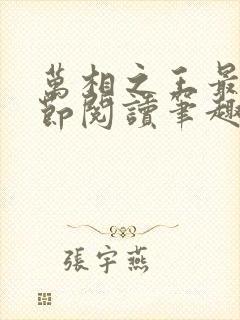 萬相之王最
節閱讀筆趣
張宇燕